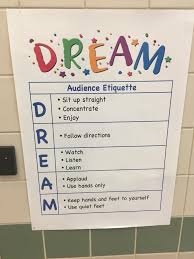 D.R.E.A.M
Audience Etiquette
D
• Sit up straight
• Concentrate
• Enjoy
R
• Follow directions
E
• Watch
• Listen
• Learn
A
• Applaud
• Use hands only
M
• Keep hands and feet to yourself
• Use quiet feet